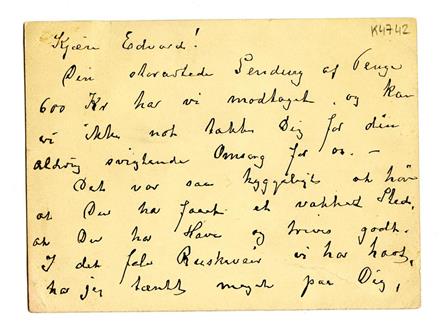 K4742
Kjære Edvard!
Din storartede Sending af Penge
600 Kr har vi modtaget, og kan
vi ikke nok takke Dig for din
aldrig svigtende Omsorg for os. —
Det var saa hyggeligt at høre
at Du har faaet et vakkert Sted,
at Du har Have og trives godt.
I det fæle Ruskeveir vi har havt,
har jeg tænkt meget paa Dig,